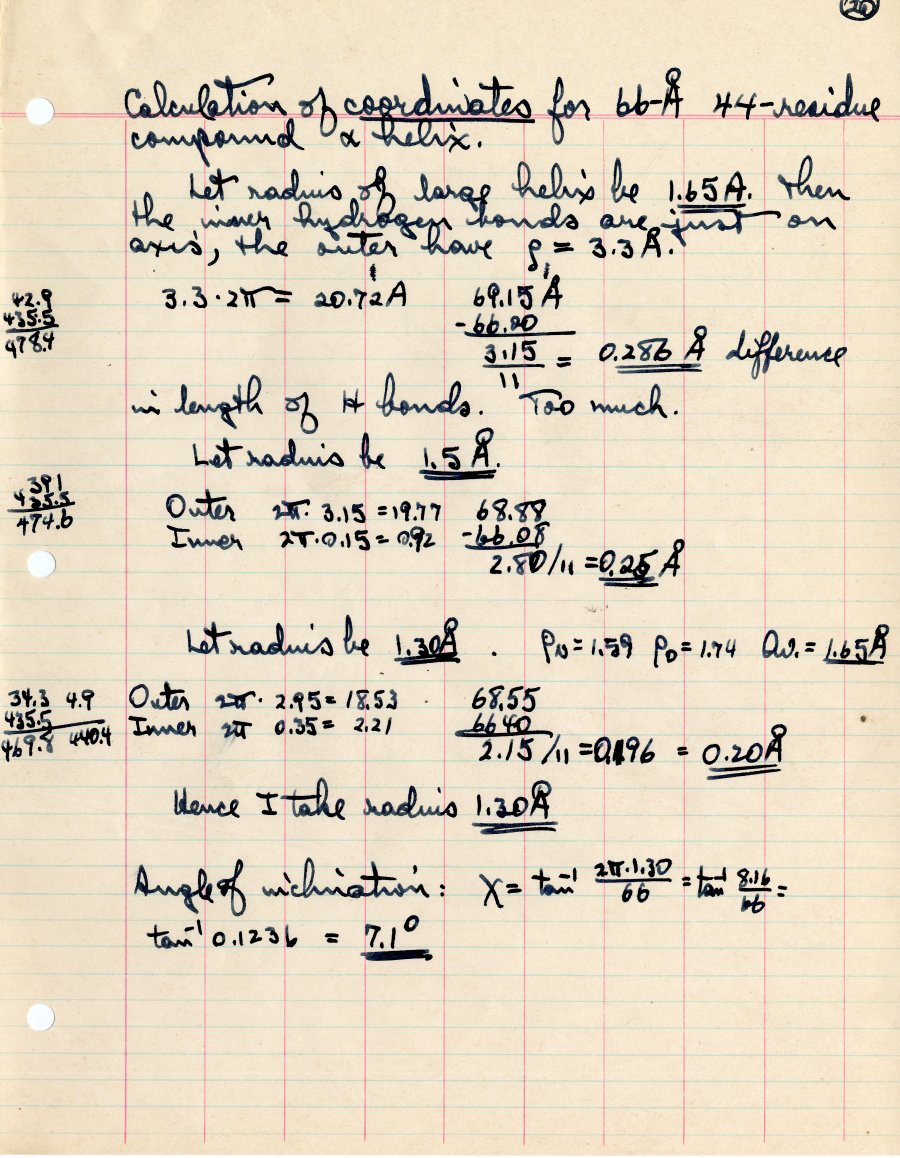 26
Calculation of coordinates for 66-Å 44-residue
compound α helix.
Let radius of large helix be 1.65 Å. Then
the inner hydrogen bonds are just on
axis, the outer have ρ = 3.3 Å.
42.9
435.5
478.4
3.3·2π = 20.72 Å 69.15 Å
-66.00
3.15/11 = 0.286 Å difference
in length of H bonds. Too much.
Let radius be 1.5 Å.
39.1
435.5
474.6
Outer 2π· 3.15 = 19.77 68.88
Inner 2π·0.15 = 0.92 -66.08
2.80/11 = 0.25 Å
Let radius be 1.30Å. ρN = 1.59 ρO = 1.74 Av. = 1.65 Å
34.3 4.9
435.5
469.8 440.4
Outer 2π· 2.95 = 18.53 68.55
Inner 2π 0.35 = 2.21 66 40
2.15/11 = 0.196 = 0.20Å
Hence I take radius 1.30Å
Angle of inclination: χ = tan⁻¹ 2π·1.30/66 = tan⁻¹ 8.16/66 =
tan⁻¹ 0.1236 = 7.1°